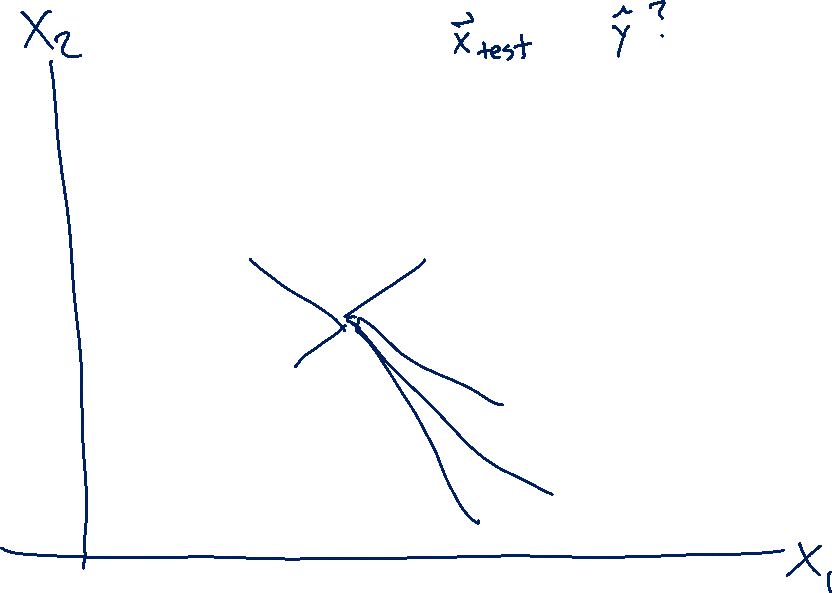 X₂
x⃗ test ŷ ?
X₁